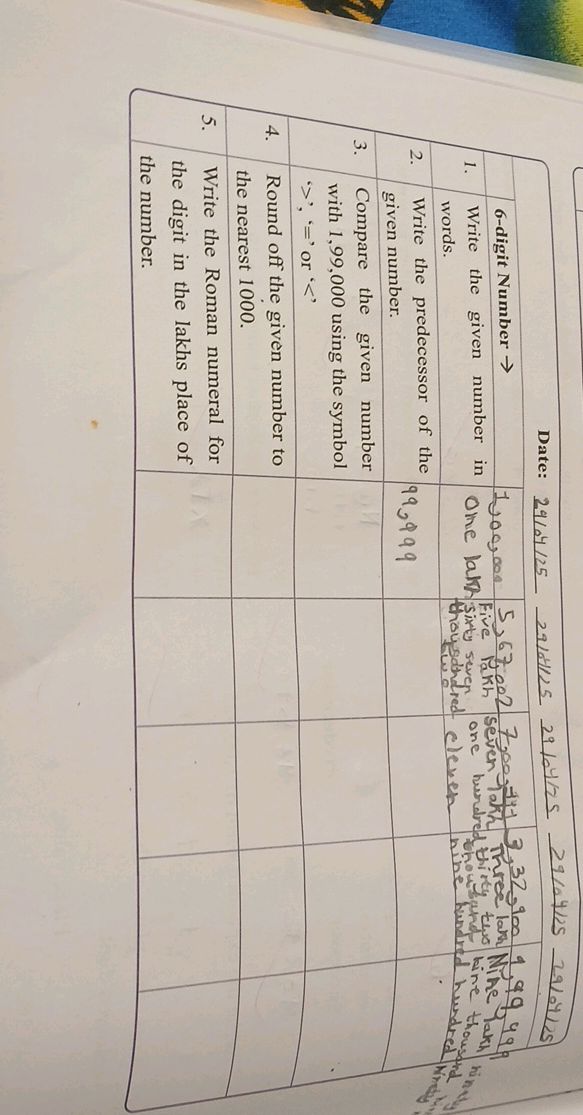 Date: 29/04/25 29/04/25 29/04/25 29/04/25 29/04/25
6-digit Number → 1,00,000 5,67,002 3,32,900 9,99,999
1. Write the given number in words.
One lakh
Five lakh sixty seven
seven lakh one hundred eleven
Three lakh thirty two thousand nine hundred
Nine lakh
2. Write the predecessor of the given number.
99,999
3. Compare the given number with 1,99,000 using the symbol '>', '=' or '<'
4. Round off the given number to the nearest 1000.
5. Write the Roman numeral for the digit in the lakhs place of the number.